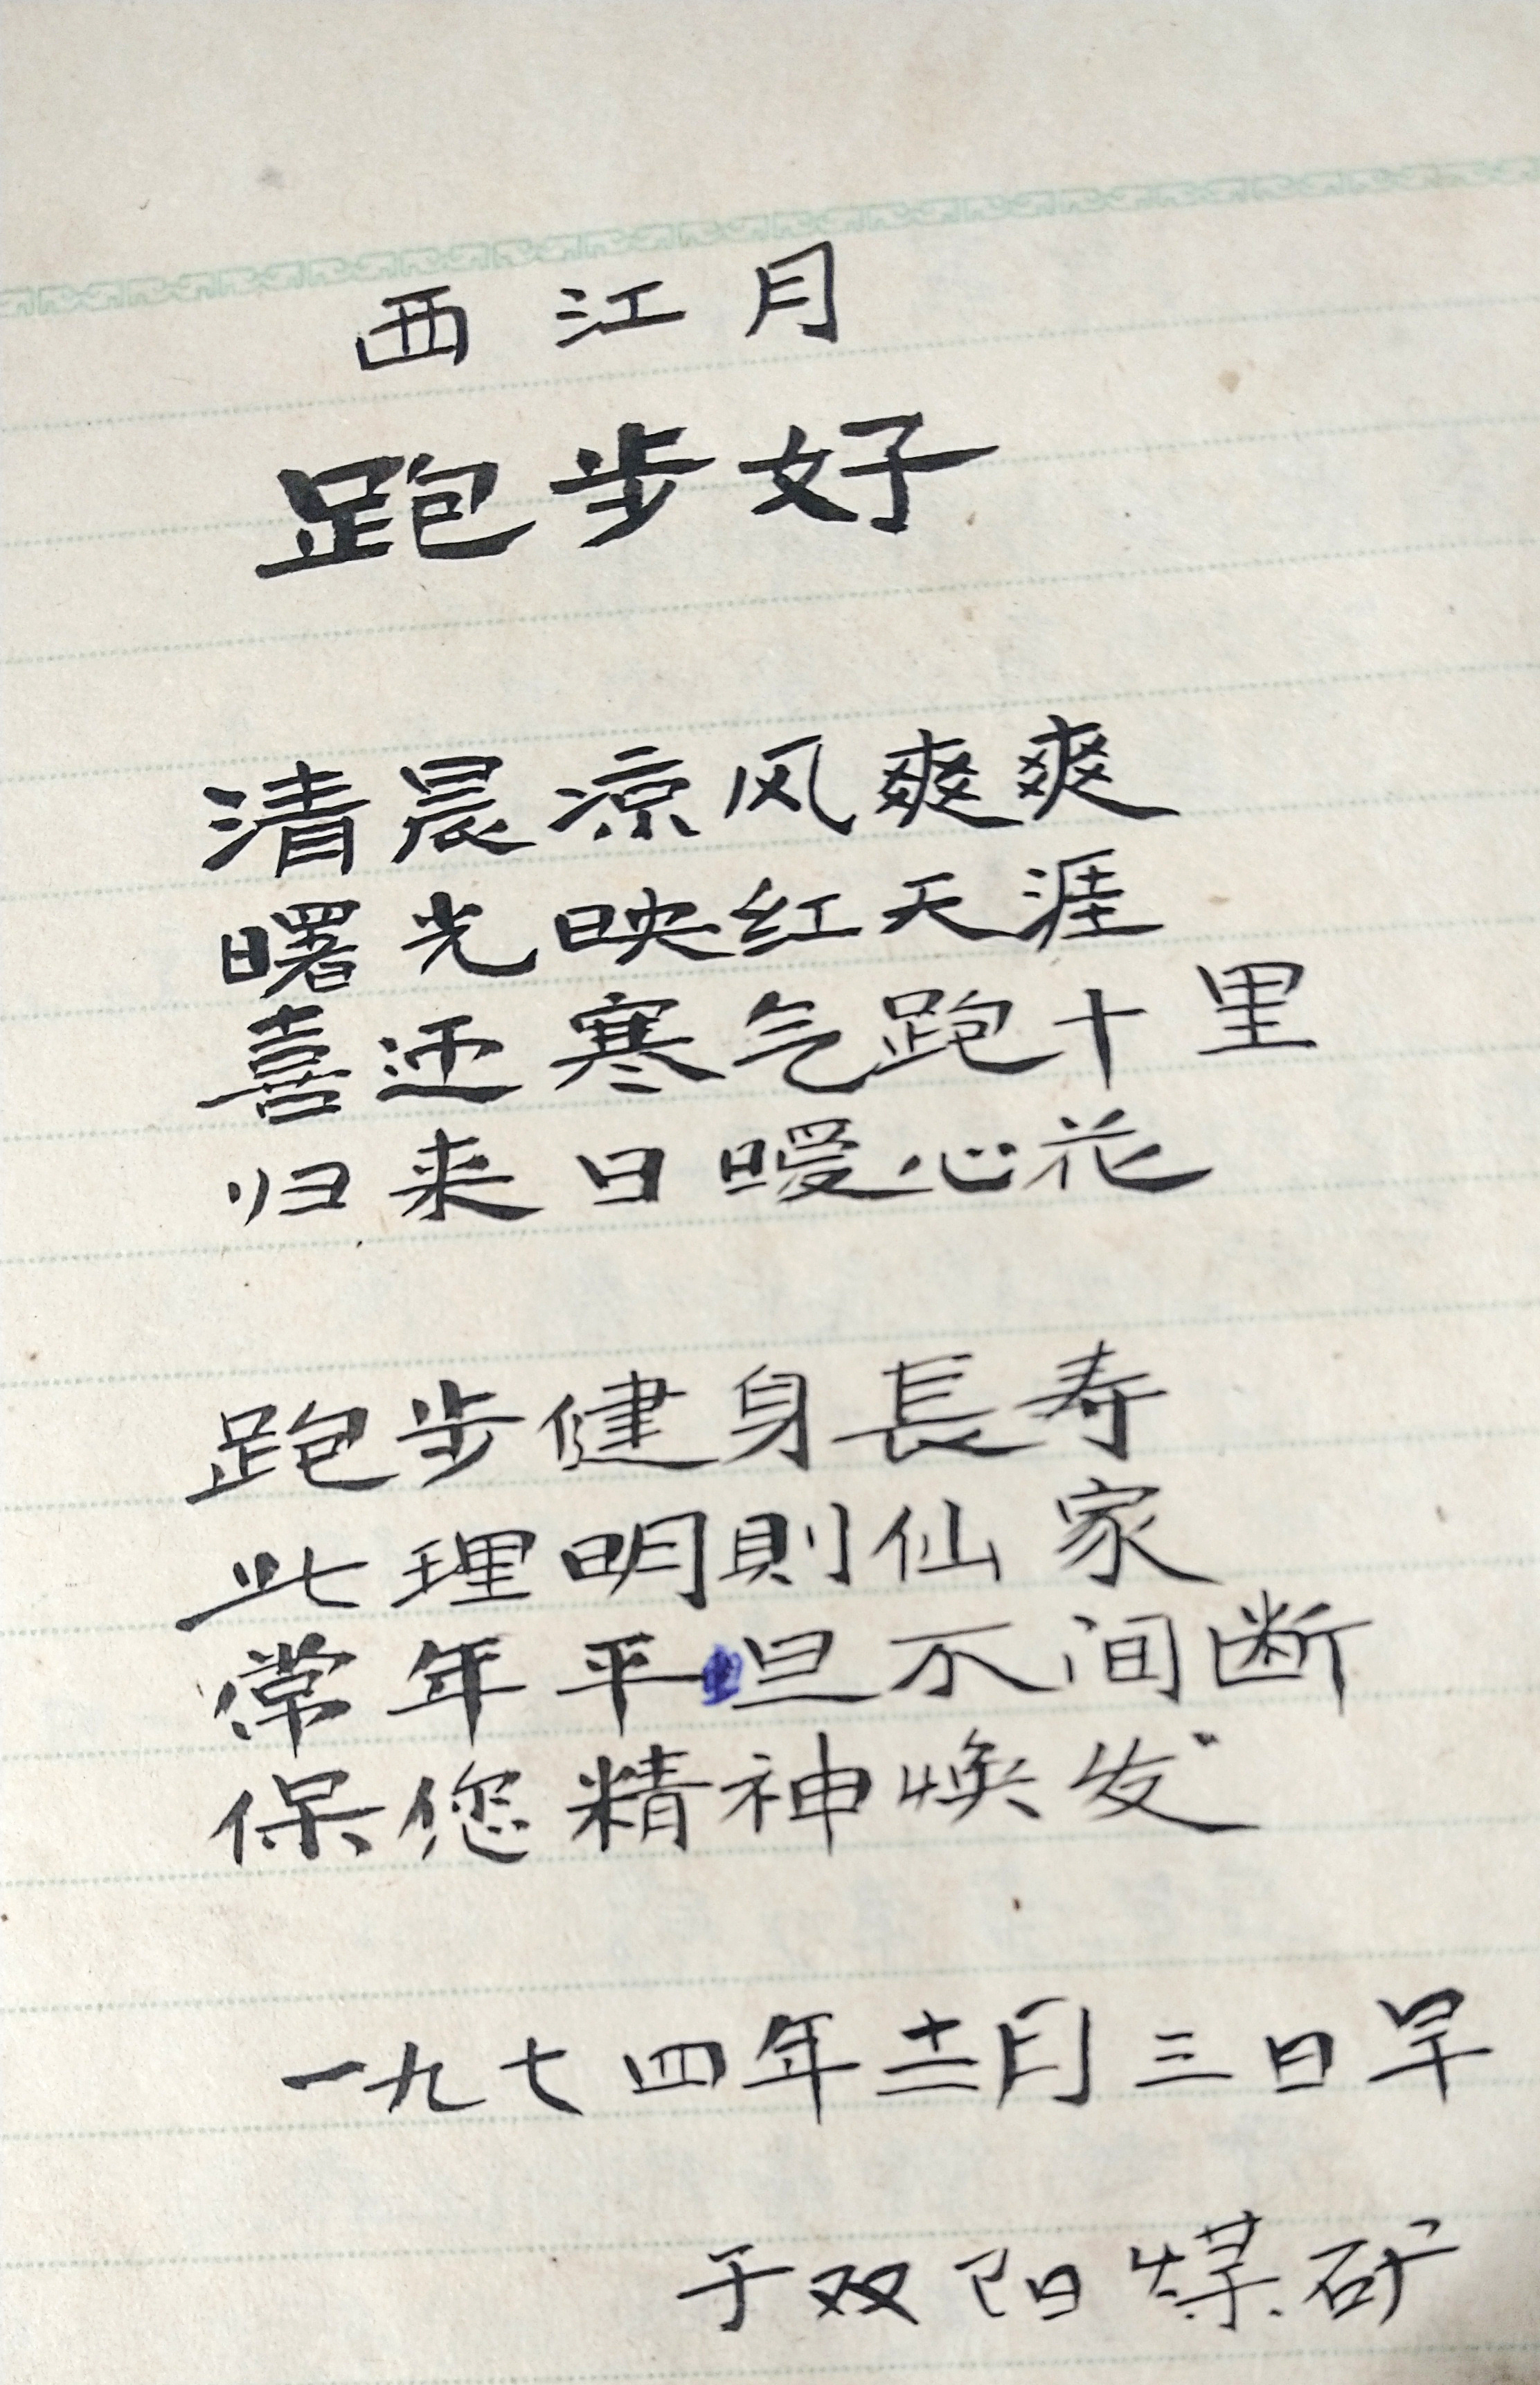 西江月
跑步好
清晨凉风爽爽
曙光映红天涯
喜迊寒气跑十里
归来日暧心花
跑步健身長寿
此理明則仙家
常年平旦不间断
保您精神焕发
一九七四年十二月三日早
于双阳煤矿